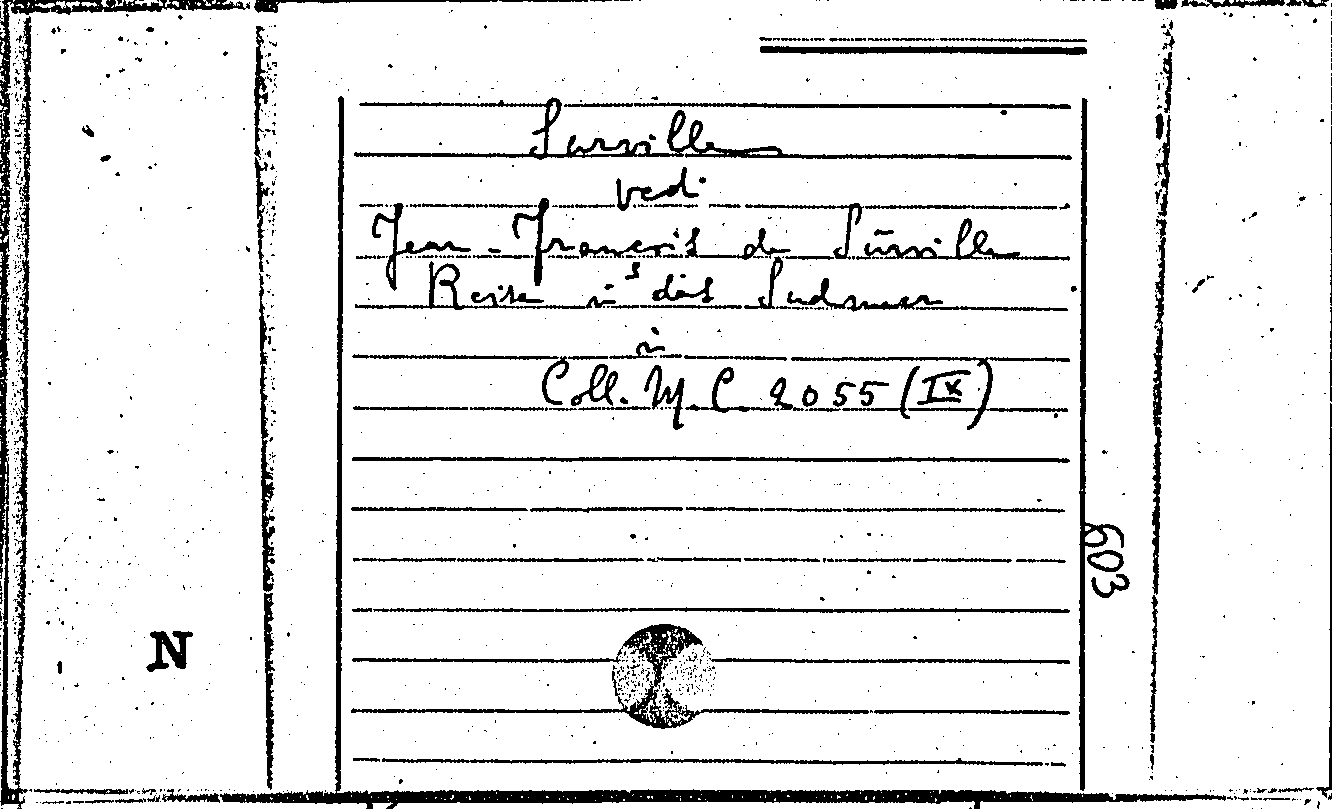 Surville
vedi
Jean-François de Surville
Reise in's das Südmeer
in
Coll. M. C. 2055 (IX)
603
N